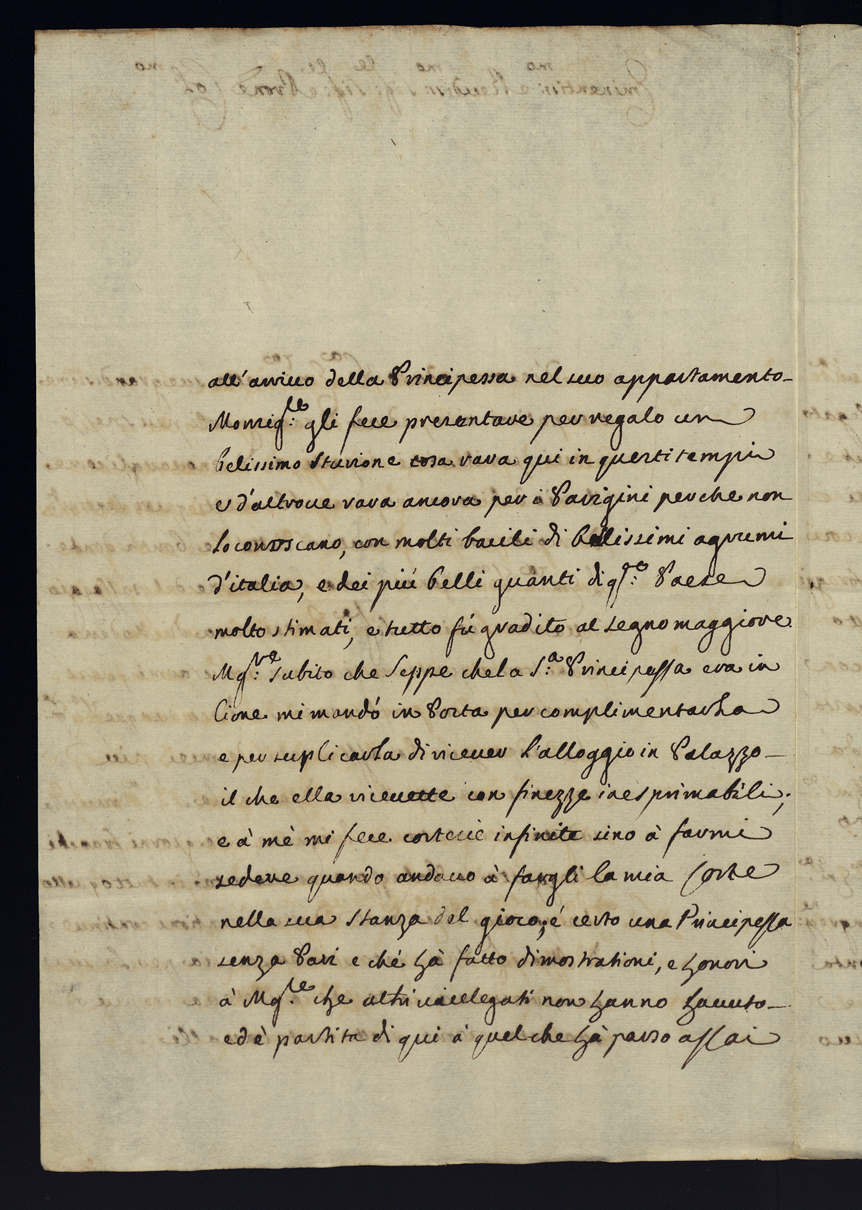 all'arrivo della Principessa nel suo appartamento
Monsig.le gli fece presentare per regalo un
belissimo sturione cosa rara qui in questi tempi
e d'altroue rara ancora per i Parigini perche non
lo conoscano, con molti bacili di bellissimi agrumi
d'italia, e dei più belli guanti di q.to Paese
molto stimati, e tutto fù gradito al segno maggiore
Mgr.re subito che seppe che la S.a Principessa era in
Lione mi mandó in Posta per complimentarla
e per suplicarla di riceuer l'alloggio in Palazzo
il che ella riceuette con finezze inesprimabili;
e à mè mi fece cortesie infinite sino à farmi
sedere quando andauo à fargli la mia Corte
nella sua stanza del gioco; é certo una Principessa
senza Pari e ché hà fatto dimostrationi, e honori
à Mg.le che altri uicelegati non hanno hauuto
ed è partita di qui à quel che hà parso assai